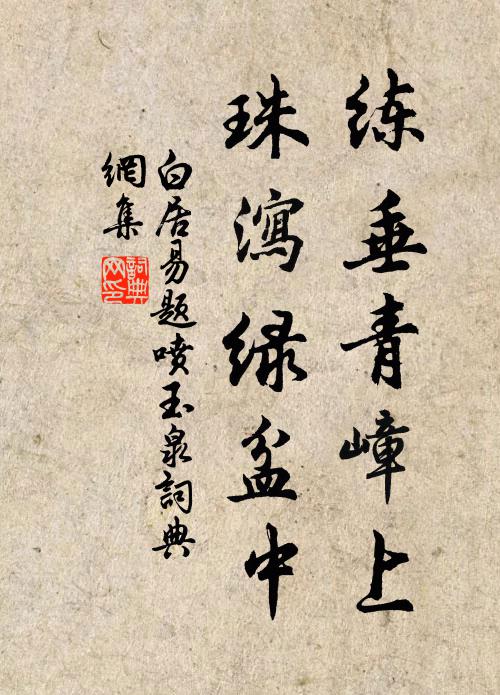 练垂青嶂上
珠瀉绿盆中
白居易题喷玉泉詞典
網集
詞典
网印